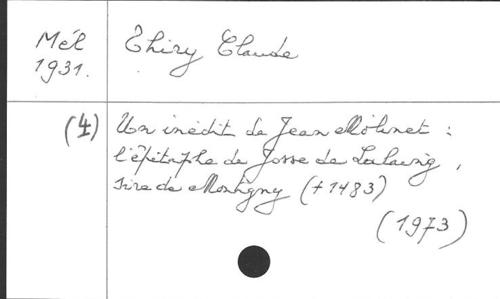 Mél
1931.
Thiry Claude
(4)
Un inédit de Jean Molinet :
l'épitaphe de Josse de Lalaing,
sire de Montigny (+1483)
(1973)